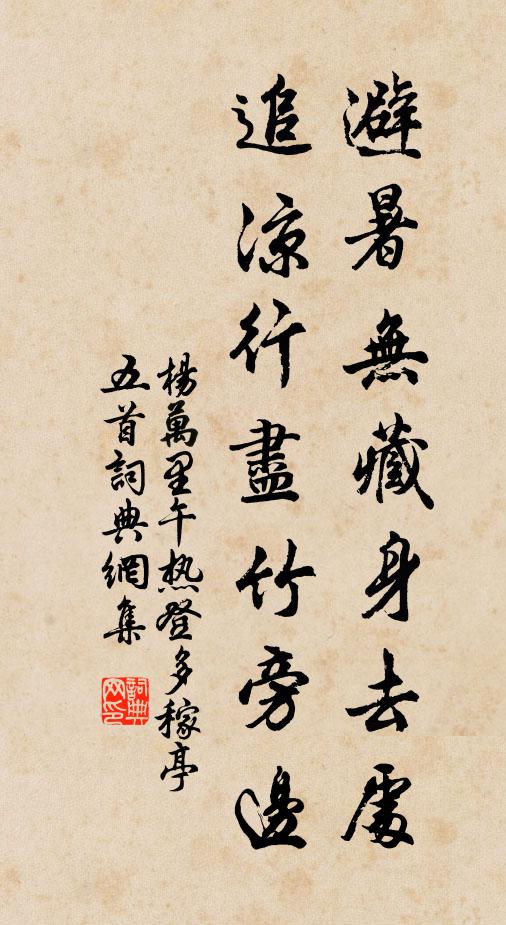 避暑無藏身去處
追涼行盡竹旁邊
楊萬里午热登多稼亭
五首詞典網集
詞典
网印